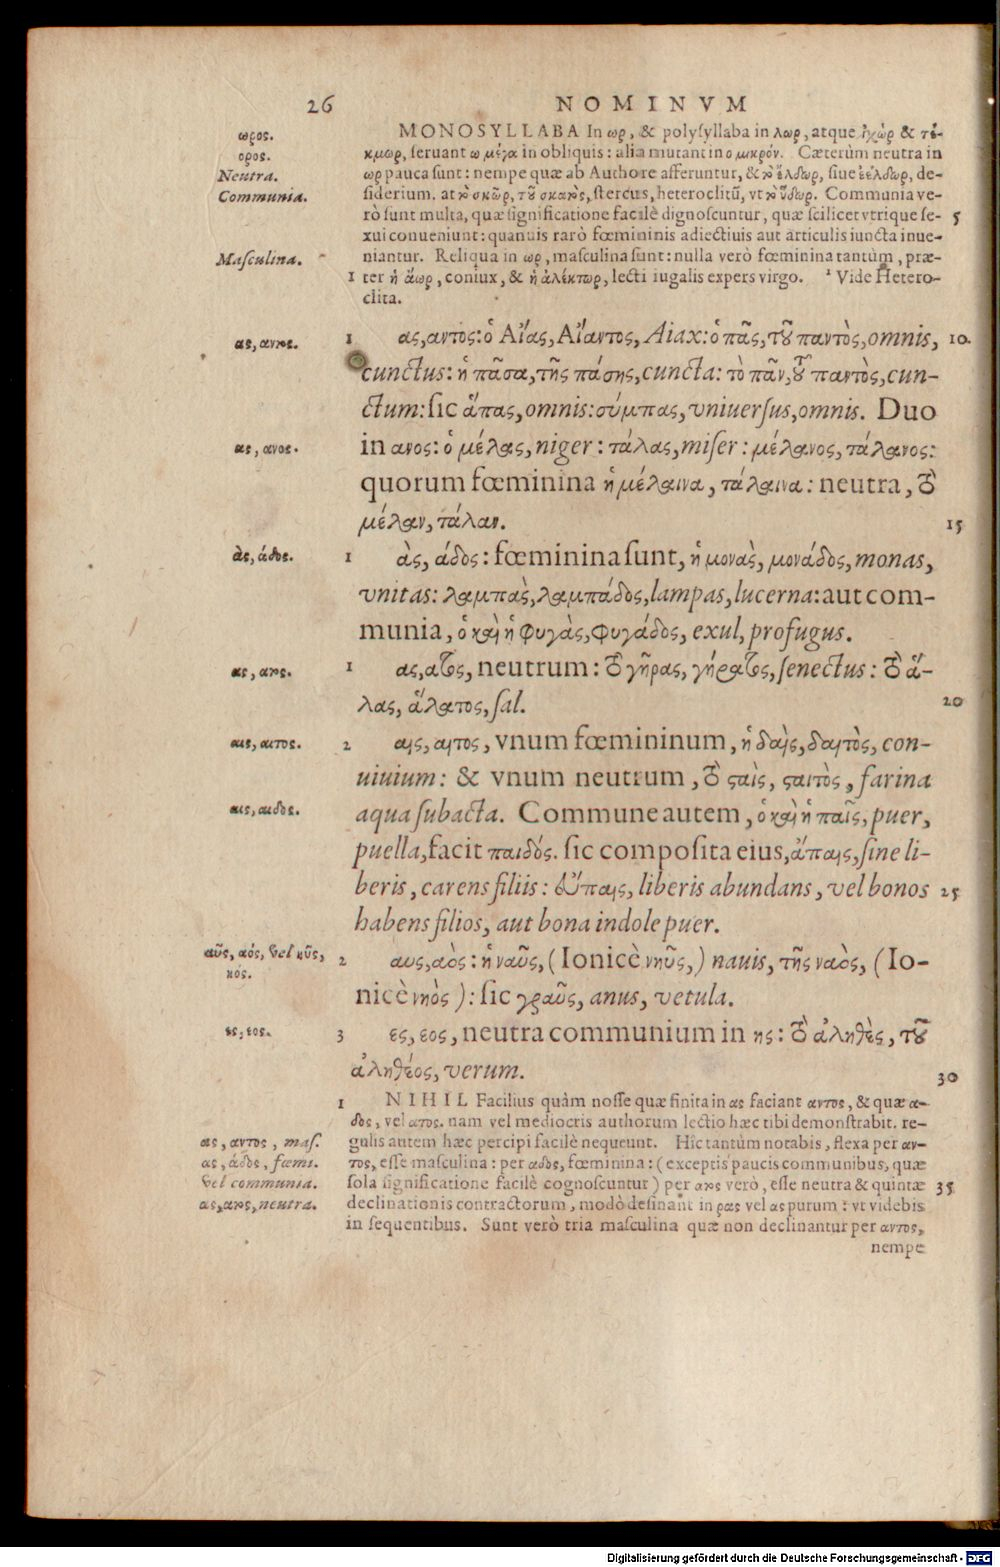 26 NOMINVM
ωρος. MONOSYLLABA In ωρ, & polyſyllaba in λωρ, atque ἰχὼρ & τέ-
ορος. κμωρ, ſeruant ω μέγα in obliquis: alia mutant in ο μικρόν. Cæterùm neutra in
Neutra. ωρ pauca ſunt: nempe quæ ab Authore afferuntur, & τὸ ἔλδωρ, ſiue ἐέλδωρ, de-
Communia. ſiderium. at τὸ σκῶρ, τοῦ σκατὸς, ſtercus, heteroclitũ, vt τὸ ὕδωρ. Communia ve-
rò ſunt multa, quæ ſignificatione facilè dignoſcuntur, quæ ſcilicet vtrique ſe- 5
xui conueniunt: quanuis rarò fœmininis adiectiuis aut articulis iuncta inue-
Maſculina. niantur. Reliqua in ωρ, maſculina ſunt: nulla verò fœminina tantùm, præ-
1 ter ἡ ἄωρ, coniux, & ἡ ἀλέκτωρ, lecti iugalis expers virgo. ¹ Vide Hetero-
clita.
ας, αντος. 1 ας, αντος: ὁ Αἴας, Αἴαντος, Aiax: ὁ πᾶς, τοῦ παντὸς, omnis, 10.
cunctus: ἡ πᾶσα, τῆς πάσης, cuncta: τὸ πᾶν, τοῦ παντὸς, cun-
ctum: ſic ἅπας, omnis: σύμπας, vniuerſus, omnis. Duo
ας, ανος. in ανος: ὁ μέλας, niger: τάλας, miſer: μέλανος, τάλανος:
quorum fœminina ἡ μέλαινα, τάλαινα: neutra, τὸ
μέλαν, τάλαν. 15
ὰς, άδος. 1 ὰς, άδος: fœminina ſunt, ἡ μονὰς, μονάδος, monas,
vnitas: λαμπὰς, λαμπάδος, lampas, lucerna: aut com-
munia, ὁ καὶ ἡ φυγὰς, φυγάδος, exul, profugus.
ας, ατος. 1 ας, ατος, neutrum: τὸ γῆρας, γήρατος, ſenectus: τὸ ἅ-
λας, ἅλατος, ſal. 20
αις, αιτος. 2 αις, αιτος, vnum fœmininum, ἡ δαὶς, δαιτὸς, con-
uiuium: & vnum neutrum, τὸ ϛαὶς, ϛαιτὸς, farina
αις, αιδος. aqua ſubacta. Commune autem, ὁ καὶ ἡ παῖς, puer,
puella, facit παιδός. ſic compoſita eius, ἄπαις, ſine li-
beris, carens filiis: εὔπαις, liberis abundans, vel bonos 25
habens filios, aut bona indole puer.
αῦς, αός, vel ηῦς, 2 αυς, αὸς: ἡ ναῦς, (Ionicè νηῦς,) nauis, τῆς ναὸς, (Io-
ηός. nicè νηὸς): ſic γραῦς, anus, vetula.
ες, εος. 3 ες, εος, neutra communium in ης: τὸ ἀληθὲς, τοῦ
ἀληθέος, verum. 30
1 NIHIL Facilius quàm noſſe quæ finita in ας faciant αντος, & quæ α-
δος, vel ατος. nam vel mediocris authorum lectio hæc tibi demonſtrabit. re-
ας, αντος, maſ. gulis autem hæc percipi facilè nequeunt. Hîc tantùm notabis, flexa per αν-
ας, άδος, fœmi. τος, eſſe maſculina: per αδος, fœminina: (exceptis paucis communibus, quæ
vel communia. ſola ſignificatione facilè cognoſcuntur) per ατος verò, eſſe neutra & quintæ 35
ας, ατος, neutra. declinationis contractorum, modò deſinant in ρας vel ας purum: vt videbis
in ſequentibus. Sunt verò tria maſculina quæ non declinantur per αντος,
nempe
Digitalisierung gefördert durch die Deutsche Forschungsgemeinschaft - DFG